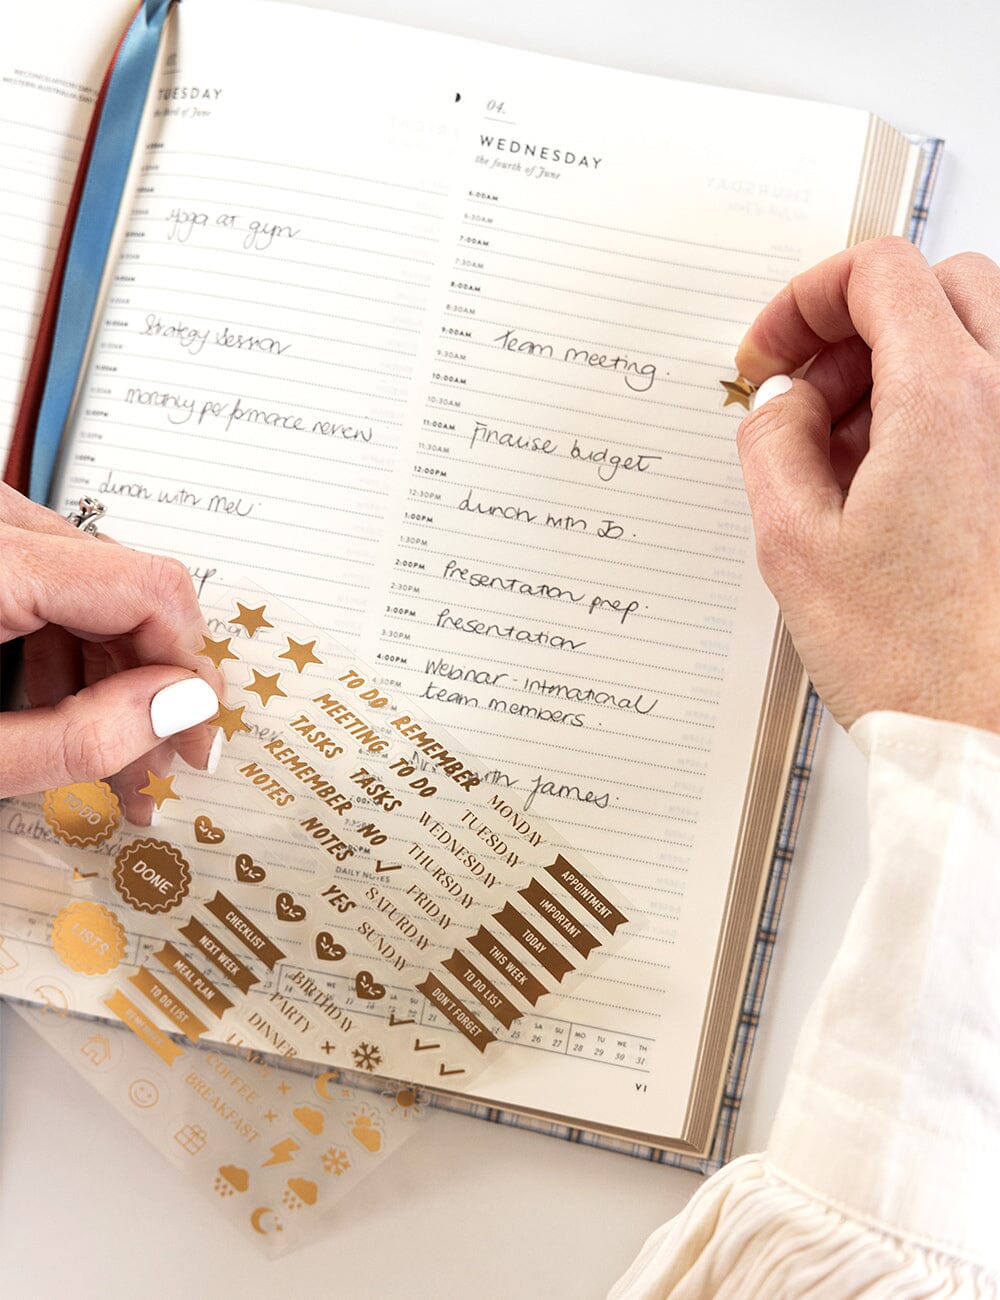 RECONCILIATION DAY
WESTERN AUSTRALIA DAY
TUESDAY
the third of June
yoga at gym
Strategy Session
monthly performance review
lunch with Mel.
up.
04.
WEDNESDAY
the fourth of June
6:00AM
6:30AM
7:00AM
7:30AM
8:00AM
8:30AM
9:00AM Team meeting.
9:30AM
10:00AM
10:30AM
11:00AM Finause budget
11:30AM
12:00PM
12:30PM lunch with Jo.
1:00PM
1:30PM
2:00PM Presentation prep.
2:30PM
3:00PM Presentation
3:30PM
4:00PM Webinar - international
4:30PM team members.
with James.
DAILY NOTES
THURSDAY
TO DO
REMEMBER
MEETING
TO DO
TASKS
TASKS
REMEMBER
NO
NOTES
NOTES
YES
MONDAY
TUESDAY
WEDNESDAY
THURSDAY
FRIDAY
SATURDAY
SUNDAY
APPOINTMENT
IMPORTANT
TODAY
THIS WEEK
TO DO LIST
DON'T FORGET
TO DO
DONE
LISTS
CHECKLIST
NEXT WEEK
MEAL PLAN
TO DO LIST
REMEMBER
BIRTHDAY
PARTY
DINNER
LUNCH
COFFEE
BREAKFAST
SA SU MO TU WE TH
25 26 27 28 29 30 31
VI